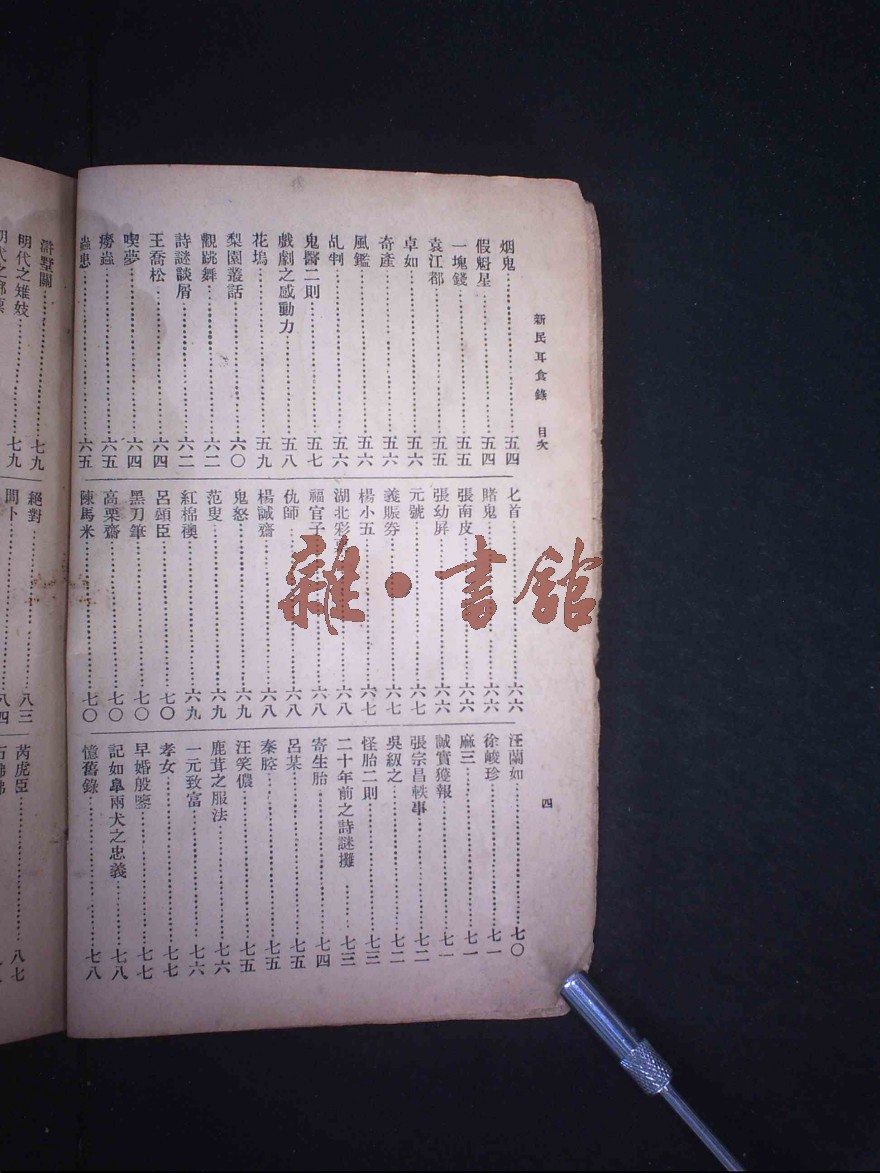 新民耳食錄　目次
四
烟鬼 五四
假魁星 五四
一塊錢 五五
袁江都 五五
卓如 五六
奇產 五六
風鑑 五六
乩判 五六
鬼醫二則 五七
戲劇之感動力 五八
花塢 五九
梨園叢話 六〇
觀跳舞 六二
詩謎談屑 六二
王喬松 六四
喫夢 六四
癆蟲 六五
蟲患 六五
匕首 六六
賭鬼 六六
張南皮 六六
張幼屏 六六
元號 六七
義賬券 六七
楊小五 六七
湖北彩 六八
福官子 六八
仇師 六八
楊誠齋 六八
鬼怒 六九
范叟 六九
紅棉襖 六九
呂頭臣 七〇
黑刀筆 七〇
高栗齋 七〇
陳馬米 七〇
汪蘭如 七〇
徐峻珍 七一
麻三 七一
誠實獲報 七一
張宗昌軼事 七二
吳紉之 七二
怪胎二則 七三
二十年前之詩謎攤 七三
寄生胎 七四
呂某 七五
秦腔 七五
汪笑儂 七五
鹿茸之服法 七六
一元致富 七六
孝女 七七
早婚般鑒 七七
記如皐兩犬之忠義 七八
憶舊錄 七八
滸墅關 七九
明代之雉妓 七九
明代之
絕對 八三
問卜 八四
芮虎臣 八七
雜·書館